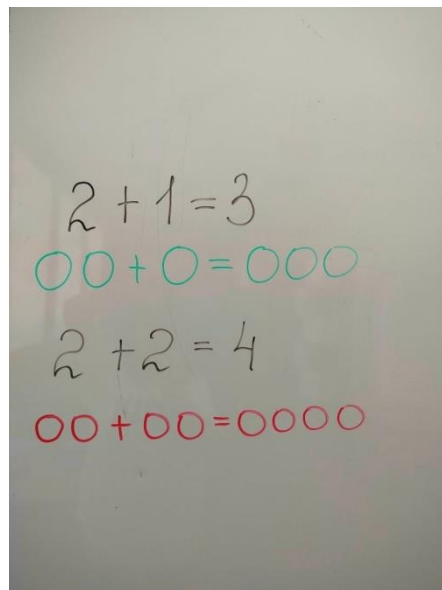 2 + 1 = 3
OO + O = OOO
2 + 2 = 4
OO + OO = OOOO